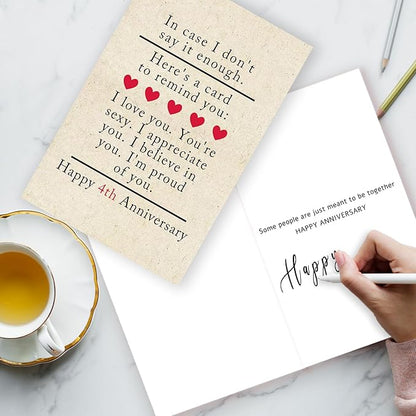 In case I don't
say it enough.
Here's a card
to remind you:
I love you. You're
sexy. I appreciate
you. I believe in
you. I'm proud
of you.
Happy 4th Anniversary
Some people are just meant to be together
HAPPY ANNIVERSARY
Happy